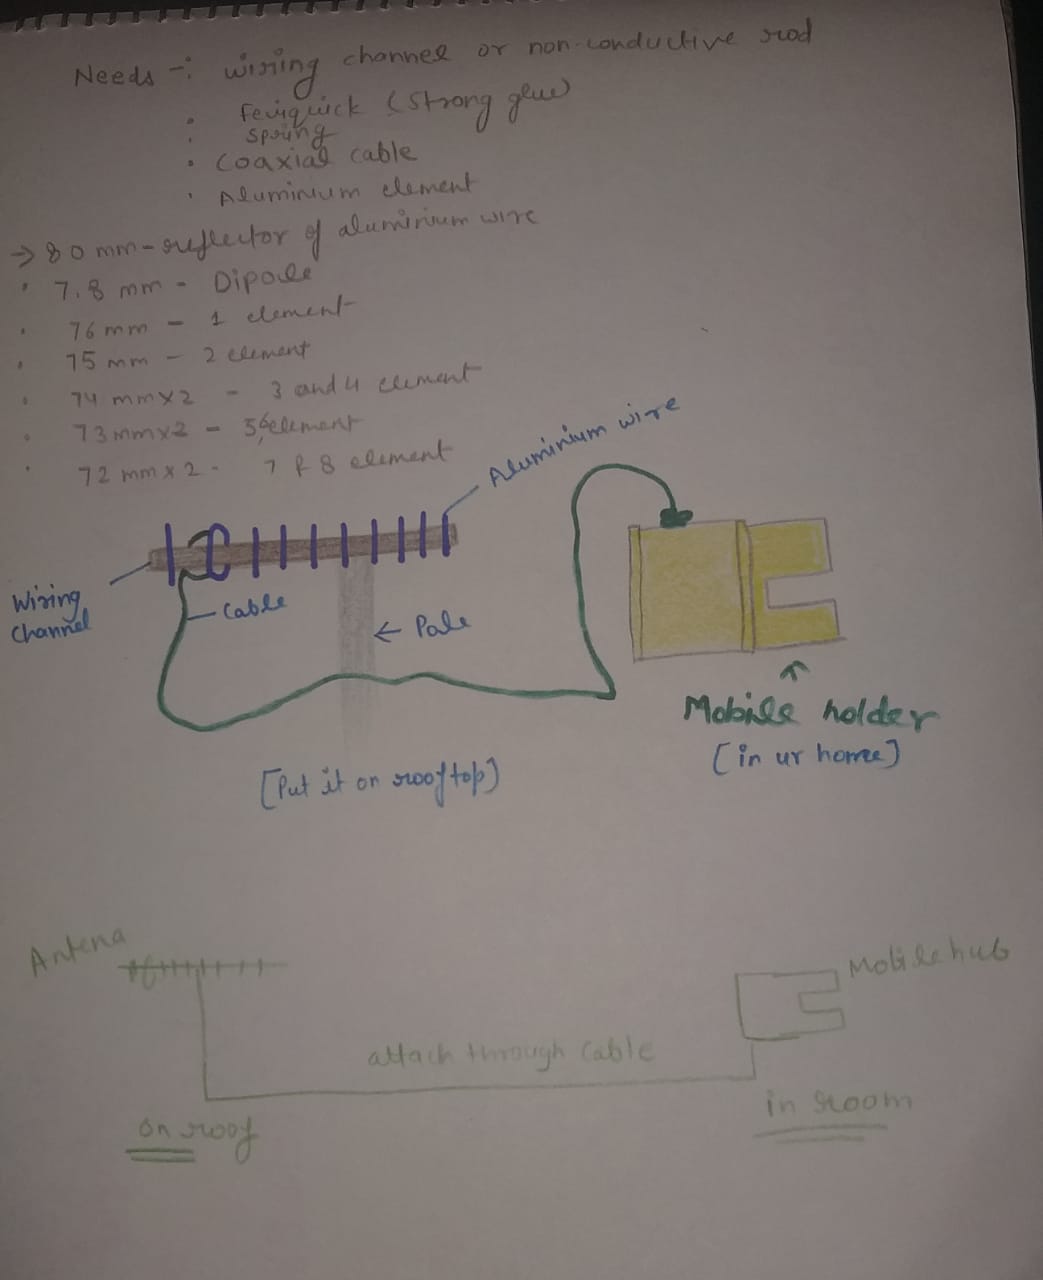 Needs -: wiring channel or non-conductive rod
• Feviquick (Strong glue)
• spring
• Coaxial cable
• Aluminium element
→ 80 mm - reflector of aluminium wire
• 7.8 mm - Dipole
• 76 mm - 1 element
• 75 mm - 2 element
• 74 mm x 2 - 3 and 4 element
• 73 mm x 2 - 5,6 element
• 72 mm x 2 - 7 & 8 element
Aluminium wire
Wiring
Channel
Cable
← Pole
Mobile holder
[in ur home]
[Put it on rooftop]
Antena
Mobile hub
attach through Cable
in room
on roof